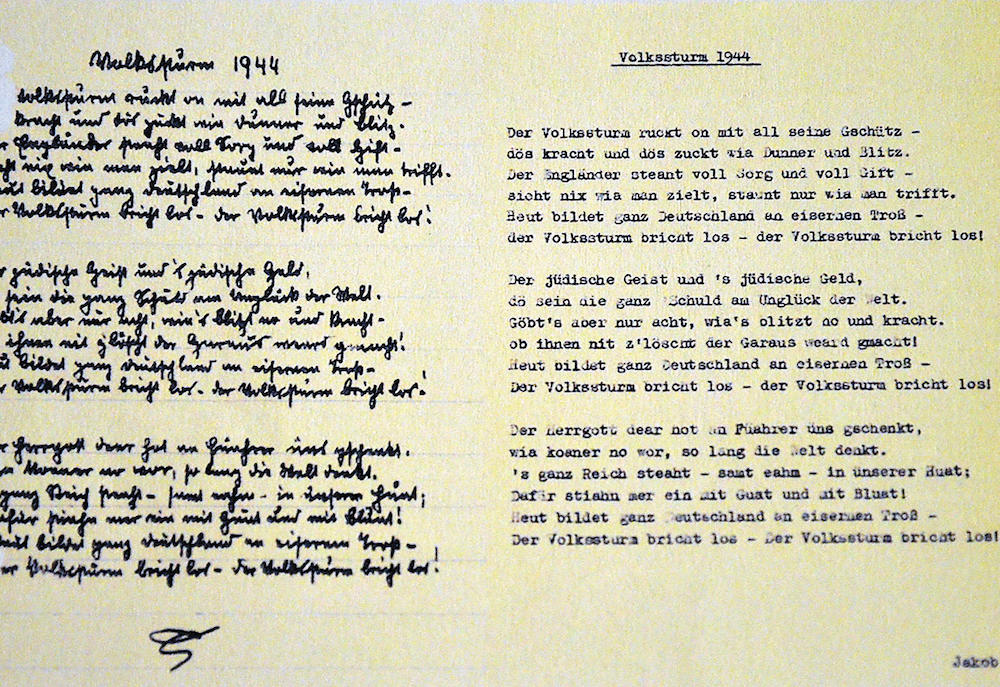 Volkssturm 1944
Volkssturm ruckt on mit all seine Gschütz -
kracht und dös zuckt wia Dunner und Blitz.
r Engländer steaht voll Sorg und voll Gift -
cht nix wia man zielt, staunt nur wia man trifft.
eut bildet ganz Deutschland an eisernen Troß -
r Volkssturm bricht los - der Volkssturm bricht los!
r jüdische Geist und 's jüdische Geld,
sein die ganz Schuld am Unglück der Welt.
bt's aber nur acht, wia's blitzt no und kracht -
ihnen nit z'löscht der Garaus weard gmacht!
bildet ganz Deutschland an eisernen Troß -
r Volkssturm bricht los - der Volkssturm bricht los!
r Herrgott dear hot an Füahrer uns gschenkt.
koaner no wor, so lang die Welt denkt.
ganz Reich steaht - samt eahm - in unserer Huat;
afür stiahn mer ein mit Guat und mit Bluat!
eut bildet ganz Deutschland an eisernen Troß -
er Volkssturm bricht los - der Volkssturm bricht los!
Volkssturm 1944
Der Volkssturm ruckt on mit all seine Gschütz -
dös kracht und dös zuckt wia Dunner und Blitz.
Der Engländer steaht voll Sorg und voll Gift -
sicht nix wia man zielt, staunt nur wia man trifft.
Heut bildet ganz Deutschland an eisernen Troß -
der Volkssturm bricht los - der Volkssturm bricht los!
Der jüdische Geist und 's jüdische Geld,
dö sein die ganz Schuld am Unglück der Welt.
Göbt's aber nur acht, wia's blitzt no und kracht.
ob ihnen nit z'löscht der Garaus weard gmacht!
Heut bildet ganz Deutschland an eisernen Troß -
Der Volkssturm bricht los - der Volkssturm bricht los!
Der Herrgott dear hot an Füahrer uns gschenkt,
wia koaner no wor, so lang die Welt denkt.
's ganz Reich steaht - samt eahm - in unserer Huat;
Dafür stiahn mer ein mit Guat und mit Bluat!
Heut bildet ganz Deutschland an eisernen Troß -
Der Volkssturm bricht los - Der Volkssturm bricht los!
Jakob